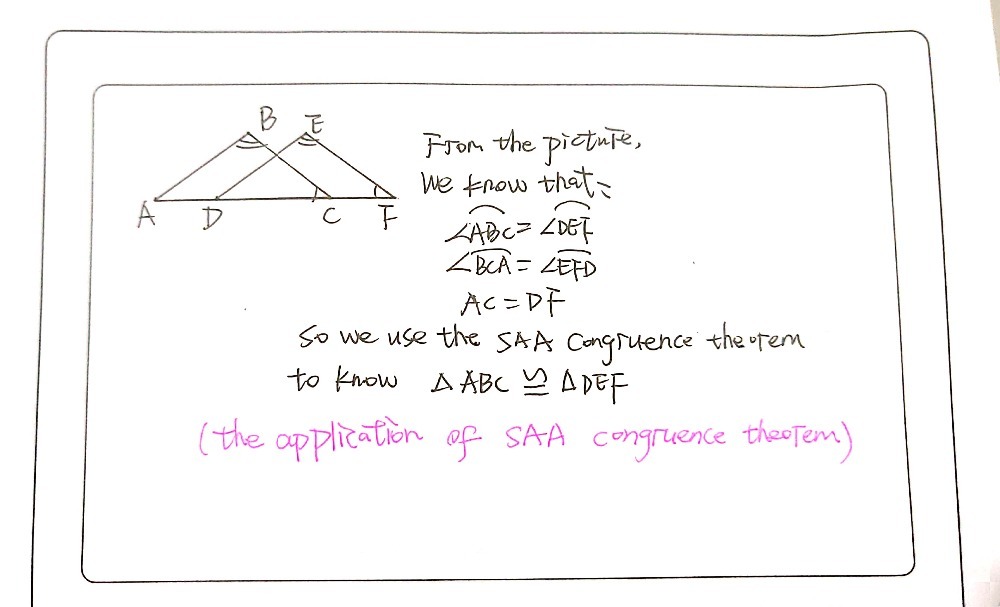 B E
A D C F
From the picture,
We know that:
∠ABC = ∠DEF
∠BCA = ∠EFD
AC = DF
So we use the SAA congruence theorem
to know △ABC ≌ △DEF
(the application of SAA congruence theorem)